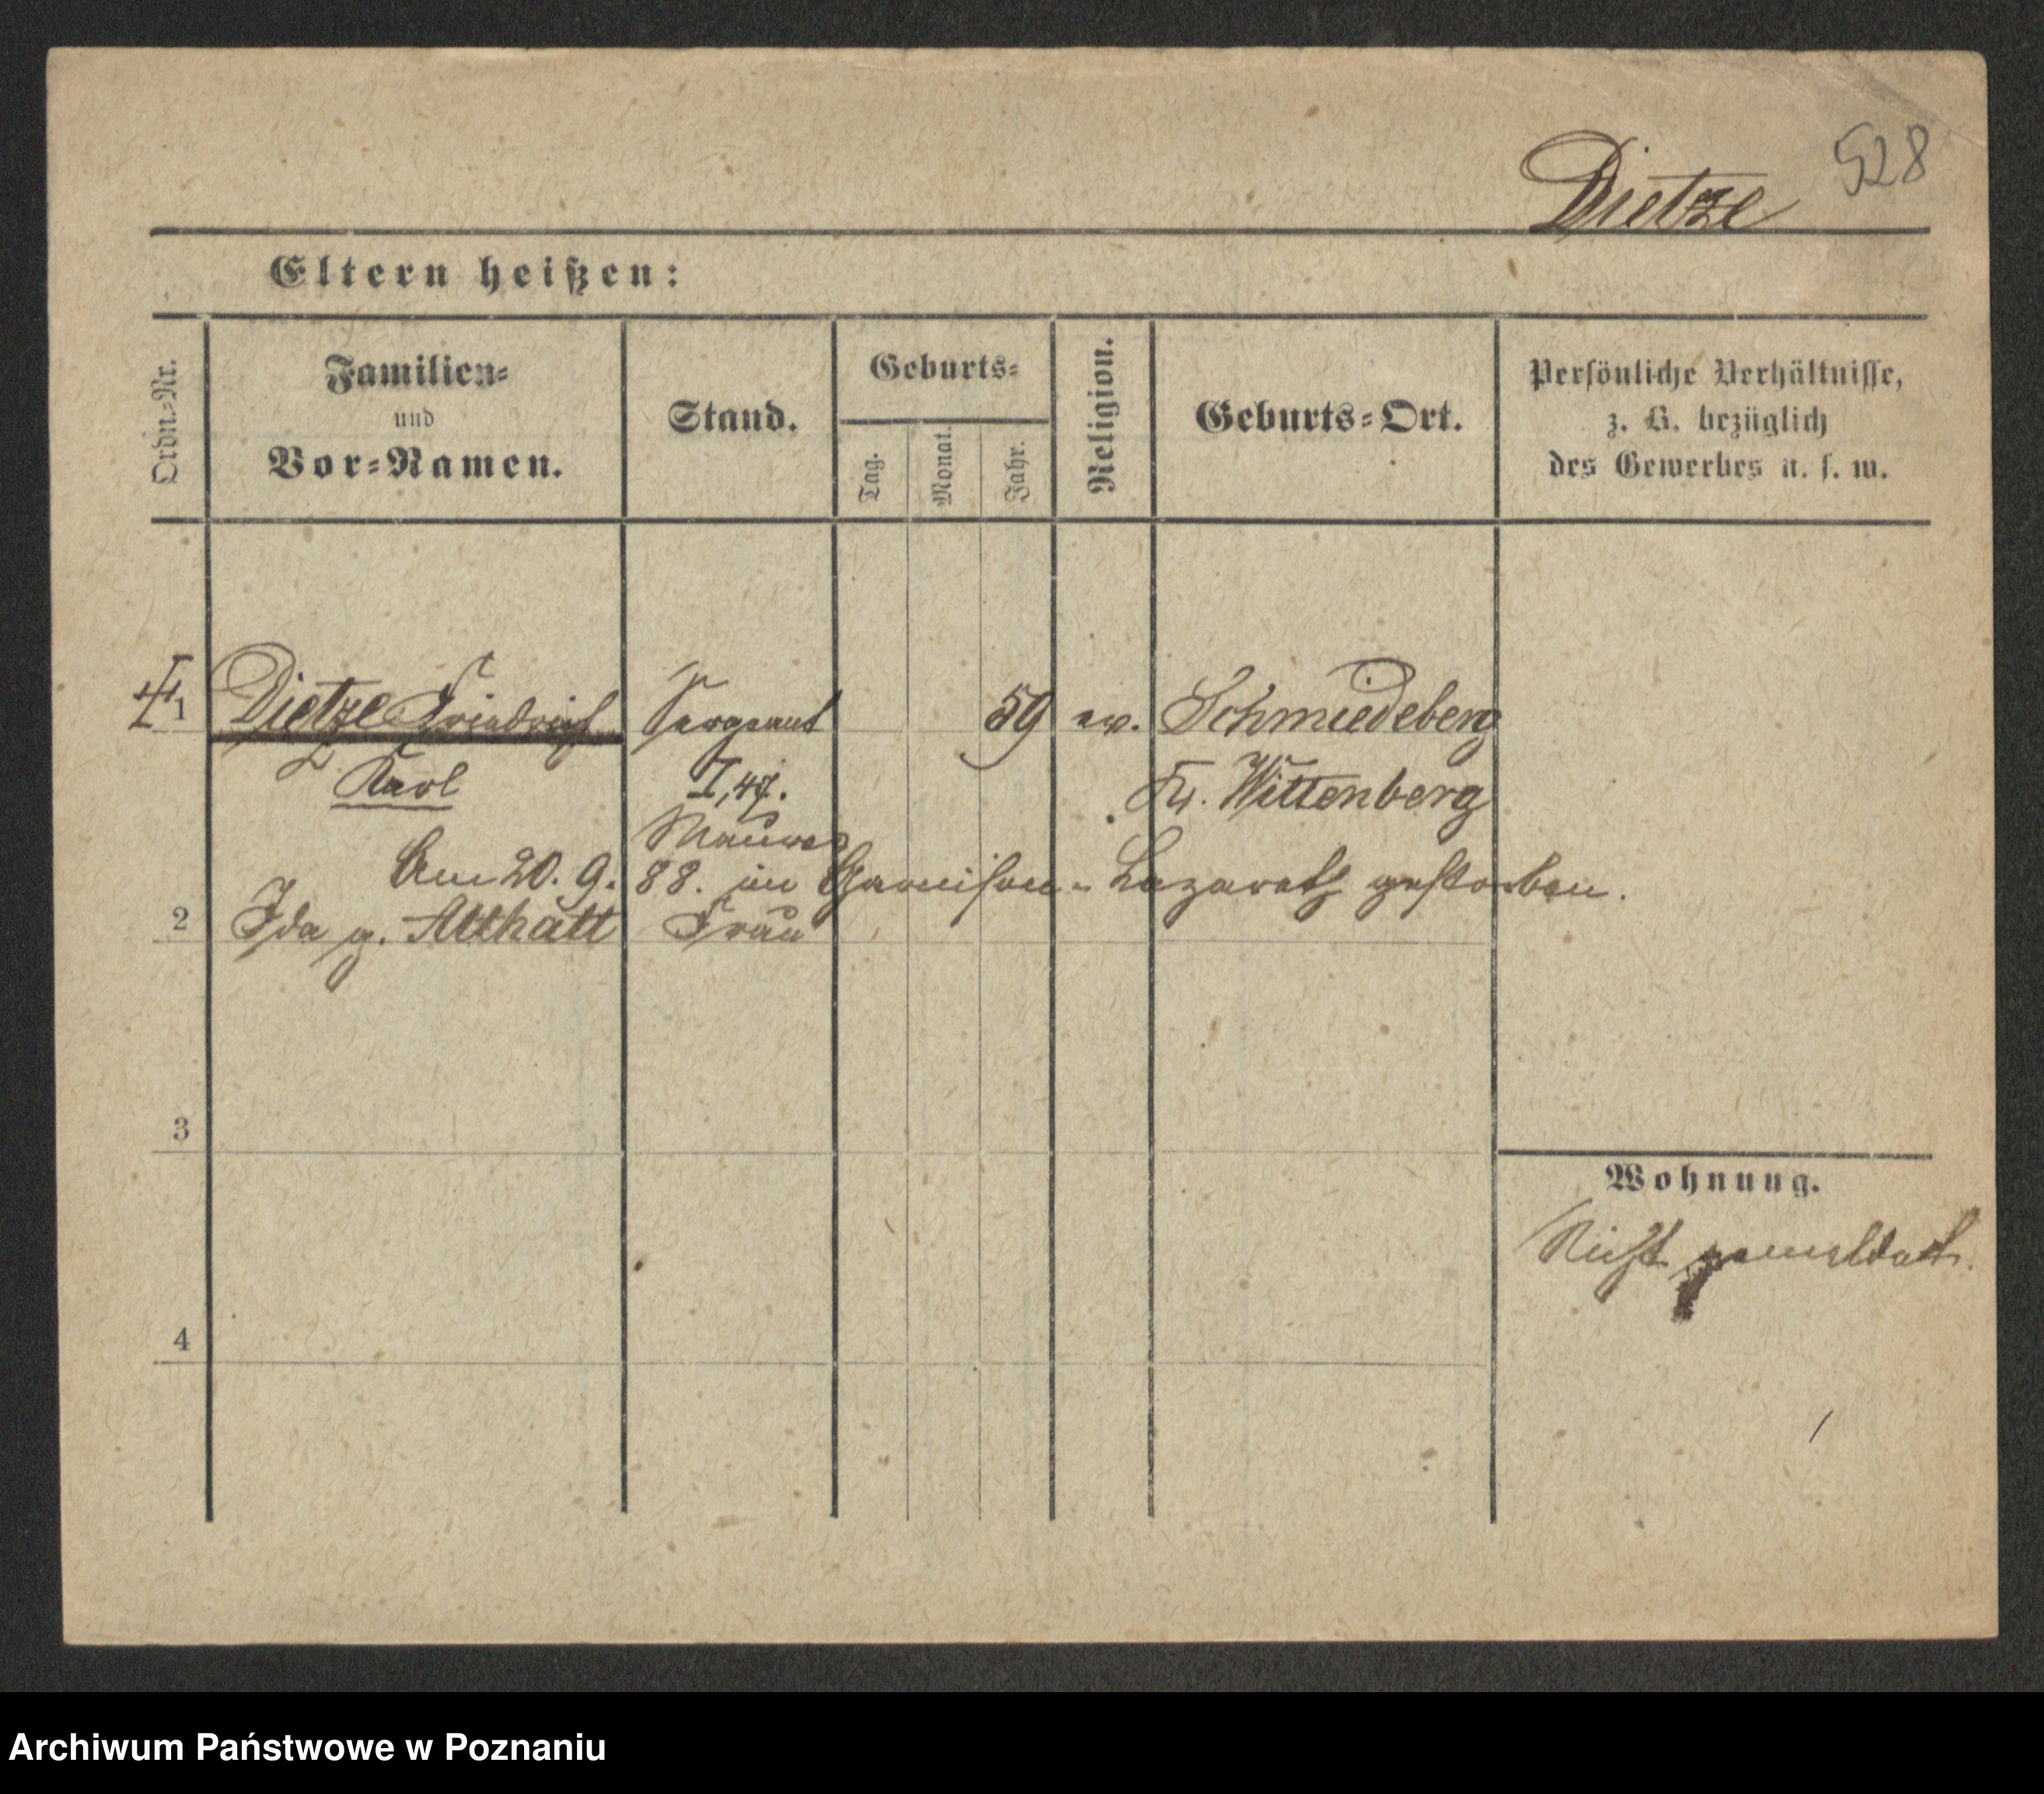 528
Dietze
Eltern heißen:
Ordn.-Nr.
Familien-
und
Vor-Namen.
Stand.
Geburts-
Tag.
Monat.
Jahr.
Religion.
Geburts-Ort.
Persönliche Verhältnisse,
z. B. bezüglich
des Gewerbes u. s. w.
1 Dietze Friedrich Sergeant 59 ev. Schmiedeberg
Karl I, 47. Kr. Wittenberg
Am 20. 9. 88. im Garnison-Lazareth gestorben.
2 Ida g. Althatt Frau
3
4
Wohnung.
Nicht gemeldet.
Archiwum Państwowe w Poznaniu